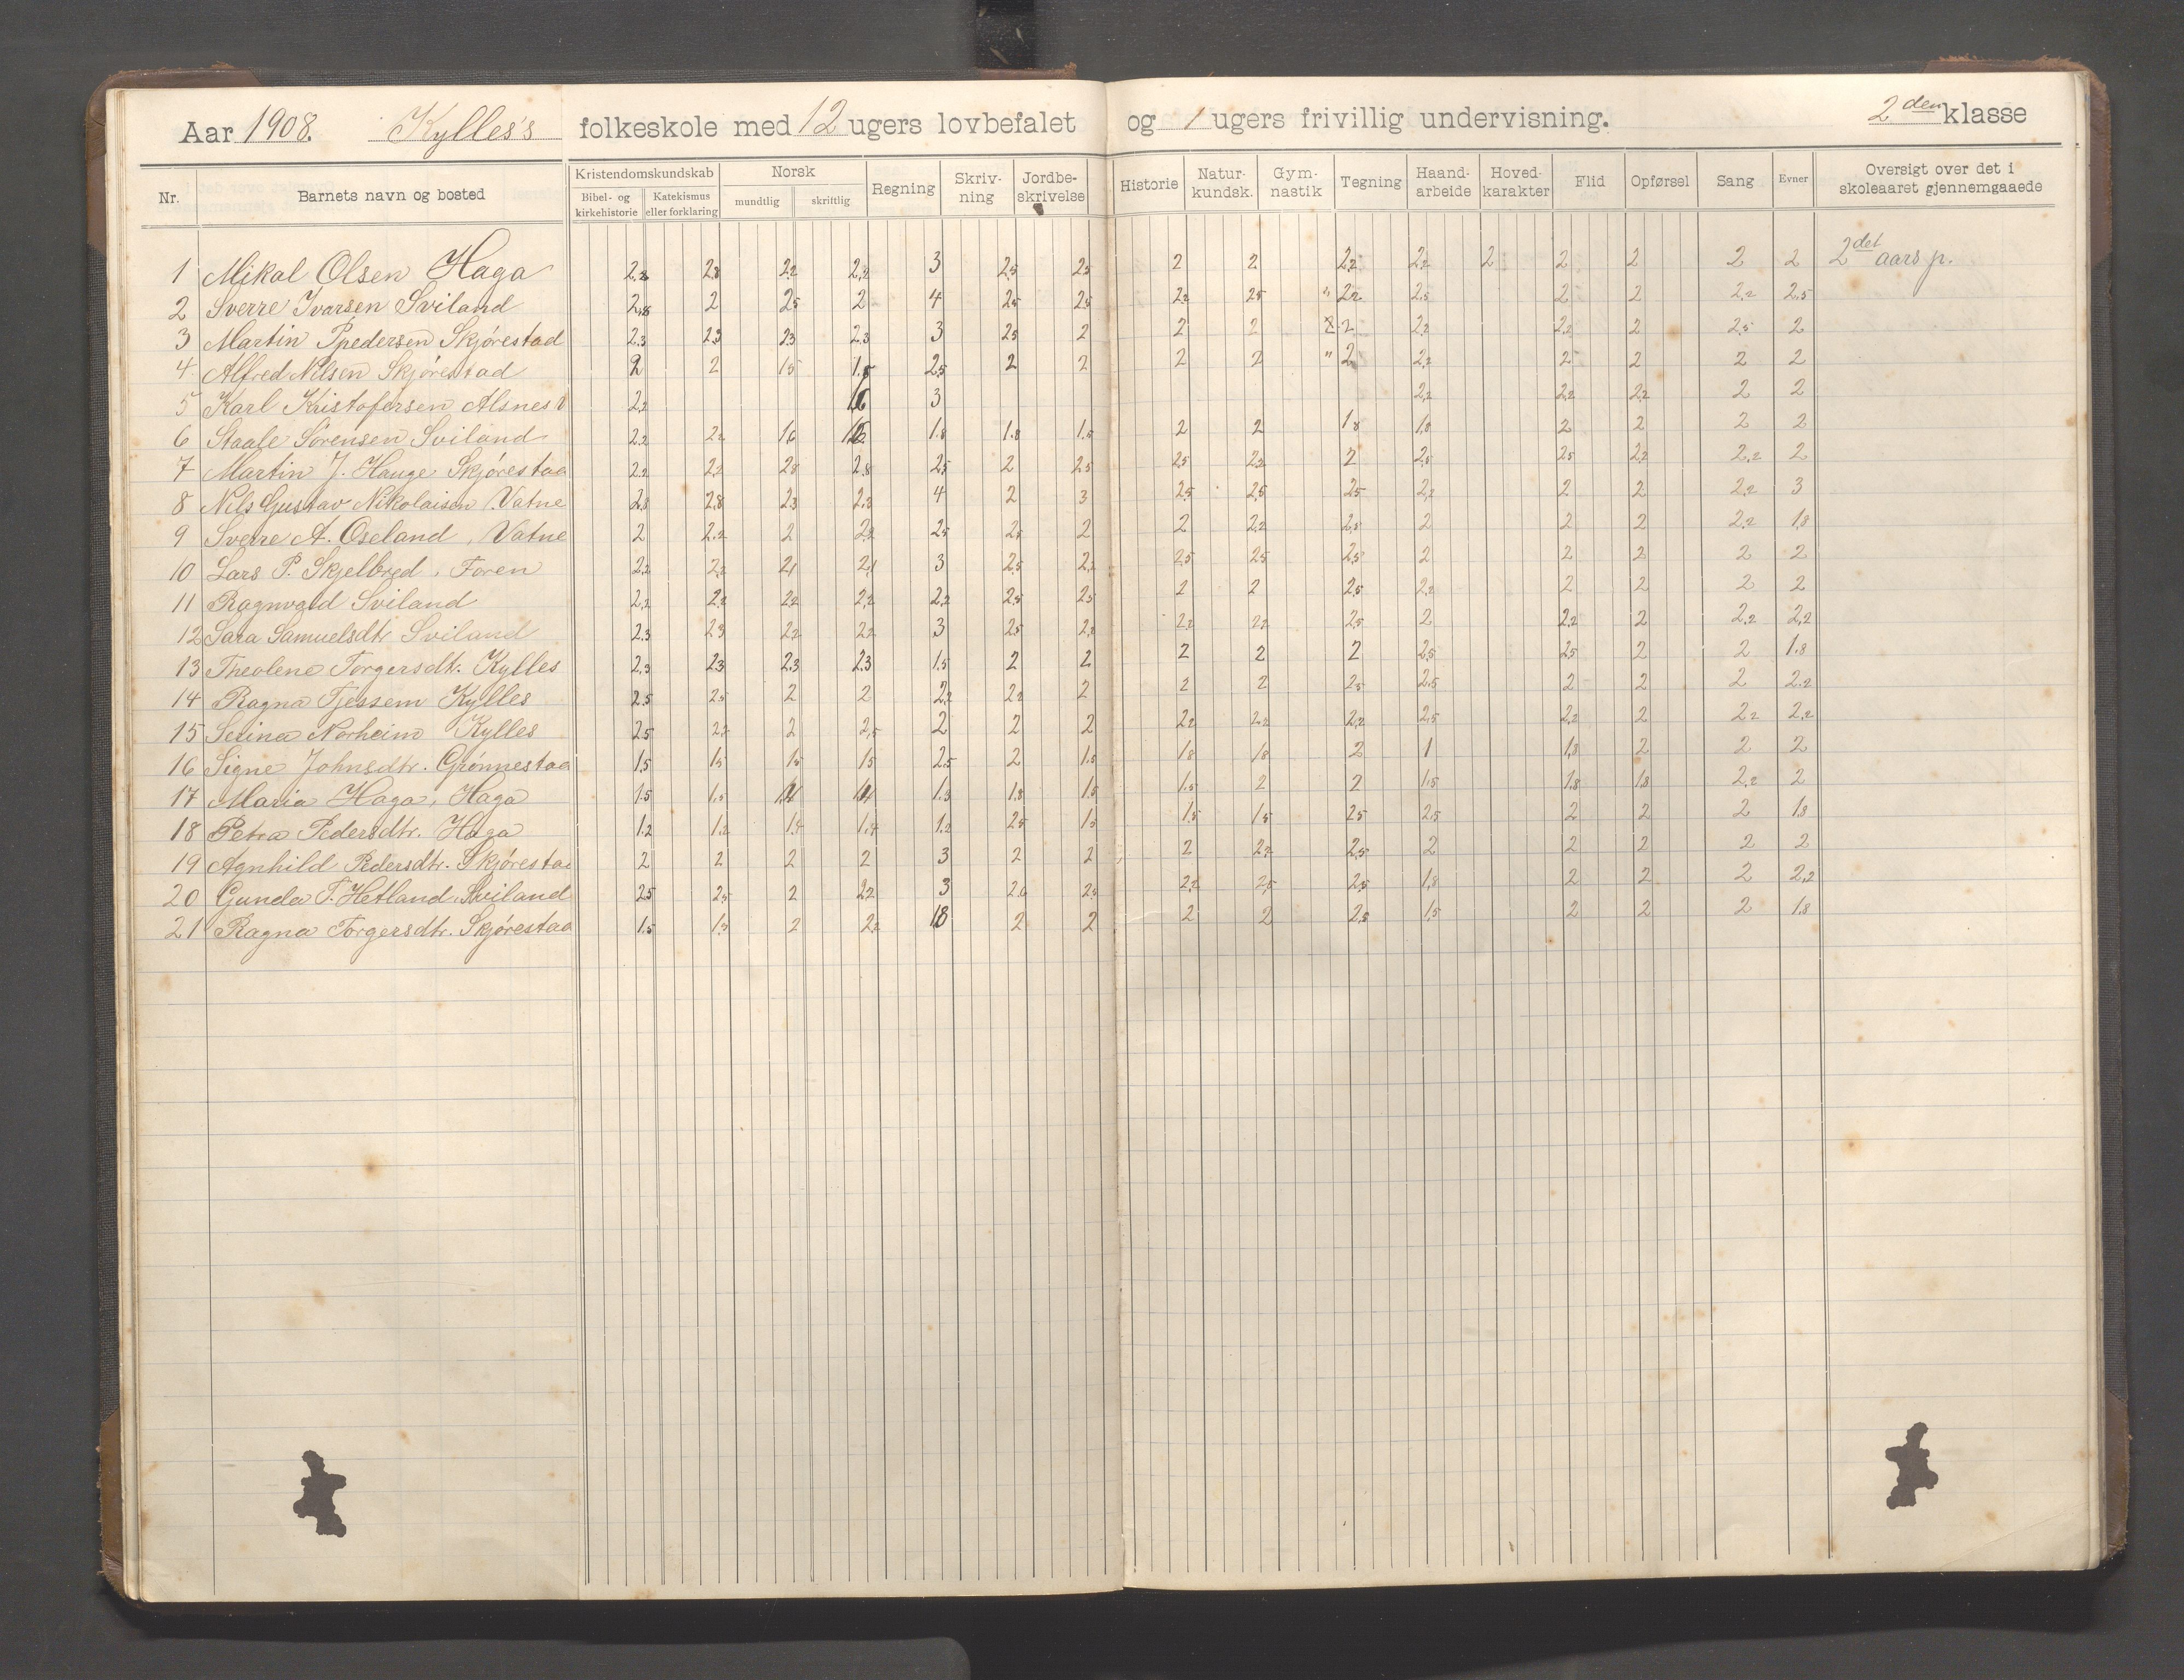 Aar 1908. Kylles's folkeskole med 12 ugers lovbefalet og 1 ugers frivillig undervisning. 2den klasse
Nr. Barnets navn og bosted Kristendomskundskab Bibel- og kirkehistorie Katekismus eller forklaring Norsk mundtlig skriftlig Regning Skriv-ning Jordbe-skrivelse Historie Natur-kundsk. Gym-nastik Tegning Haand-arbeide Hoved-karakter Flid Opførsel Sang Evner Oversigt over det i skoleaaret gjennemgaaede
1 Mikal Olsen Haga 2,2 2,8 2,2 2,2 3 2,5 2,5 2 2 2,2 2,2 2 2 2 2 2 2det aars p.
2 Sverre Ivarsen Sviland 2,8 2 2,5 2 4 2,5 2,5 2,2 2,5 " 2,2 2,5 2 2 2,2 2,5
3 Martin Ppedersen Skjørestad 2,3 2,3 2,3 2,3 3 2,5 2 2 2 2 2,2 2,2 2 2,5 2
4 Alfred Nilsen Skjørestad 2 2 1,5 1,5 2,5 2 2 2 2 " 2 2,2 2,5 2 2 2
5 Karl Kristofersen Alsnes 2,2 3 2,2 2,2 2,2 2 2
6 Staale Sørensen Sviland 2,2 2,2 1,6 1,8 1,8 1,5 2 2 1,8 1,8 2 2 2 2
7 Martin J. Hauge Skjørestad 2,2 2,2 2,8 2,8 2,5 2 2,5 2,5 2,2 2 2,5 2,5 2,2 2,2 2
8 Nils Gustav Nikolaisen Vatne 2,8 2,8 2,3 2,3 4 2 3 2,5 2,5 2,5 2,2 2 2 2,2 3
9 Sverre A. Oseland, Vatne 2 2,2 2 2,2 2,5 2,5 2 2 2,2 2,8 2 2 2 2,2 1,8
10 Lars P. Skjelbred, Foren 2,2 2,2 2,1 2,1 3 2,5 2,2 2,5 2,5 2,5 2 2 2 2 2
11 Ragnvald Sviland 2,2 2,2 2,2 2,2 2,2 2,5 2,5 2 2 2,5 2,2 2 2 2 2
12 Sara Samuelsdtr Sviland 2,3 2,3 2,2 2,2 3 2,5 2,2 2,2 2,2 2,5 2 2,2 2 2,2 2,2
13 Theolene Torgersdt. Kylles 2,3 2,3 2,3 2,3 1,5 2 2 2 2 2 2,5 2,5 2 2 1,8
14 Ragna Tjessem Kylles 2,5 2,5 2 2 2,2 2,2 2 2 2 2,5 2,5 2 2 2 2,2
15 Serina Norheim Kylles 2,5 2,2 2 2,5 2 2 2 2,2 2,2 2,2 2,5 2,2 2 2,2 2,2
16 Signe Johnsdtr. Grønnestad 1,5 1,5 1,5 1,5 2,5 2 1,5 1,8 1,8 2 1 1,8 2 2 2
17 Maria Haga, Haga 1,5 1,5 1,4 1,4 1,3 1,8 1,5 1,5 2 2 1,5 1,8 1,8 2,2 2
18 Petra Pedersdtr. Haga 1,2 1,2 1,4 1,4 1,2 2,5 1,5 1,5 1,5 2,5 2,5 2 2 2 1,8
19 Agnhild Pedersdtr. Skjørestad 2 2 2 2 3 2 2 2 2,2 2,5 2 2 2 2 2
20 Gunda T. Hetland, Sviland 2,5 2,5 2 2,2 3 2,0 2,5 2,2 2,5 2,5 1,8 2 2 2 2,2
21 Ragna Torgersdtr. Skjørestad 1,5 1,5 2 2,2 1,8 2 2 2 2 2,5 1,5 2 2 2 1,8